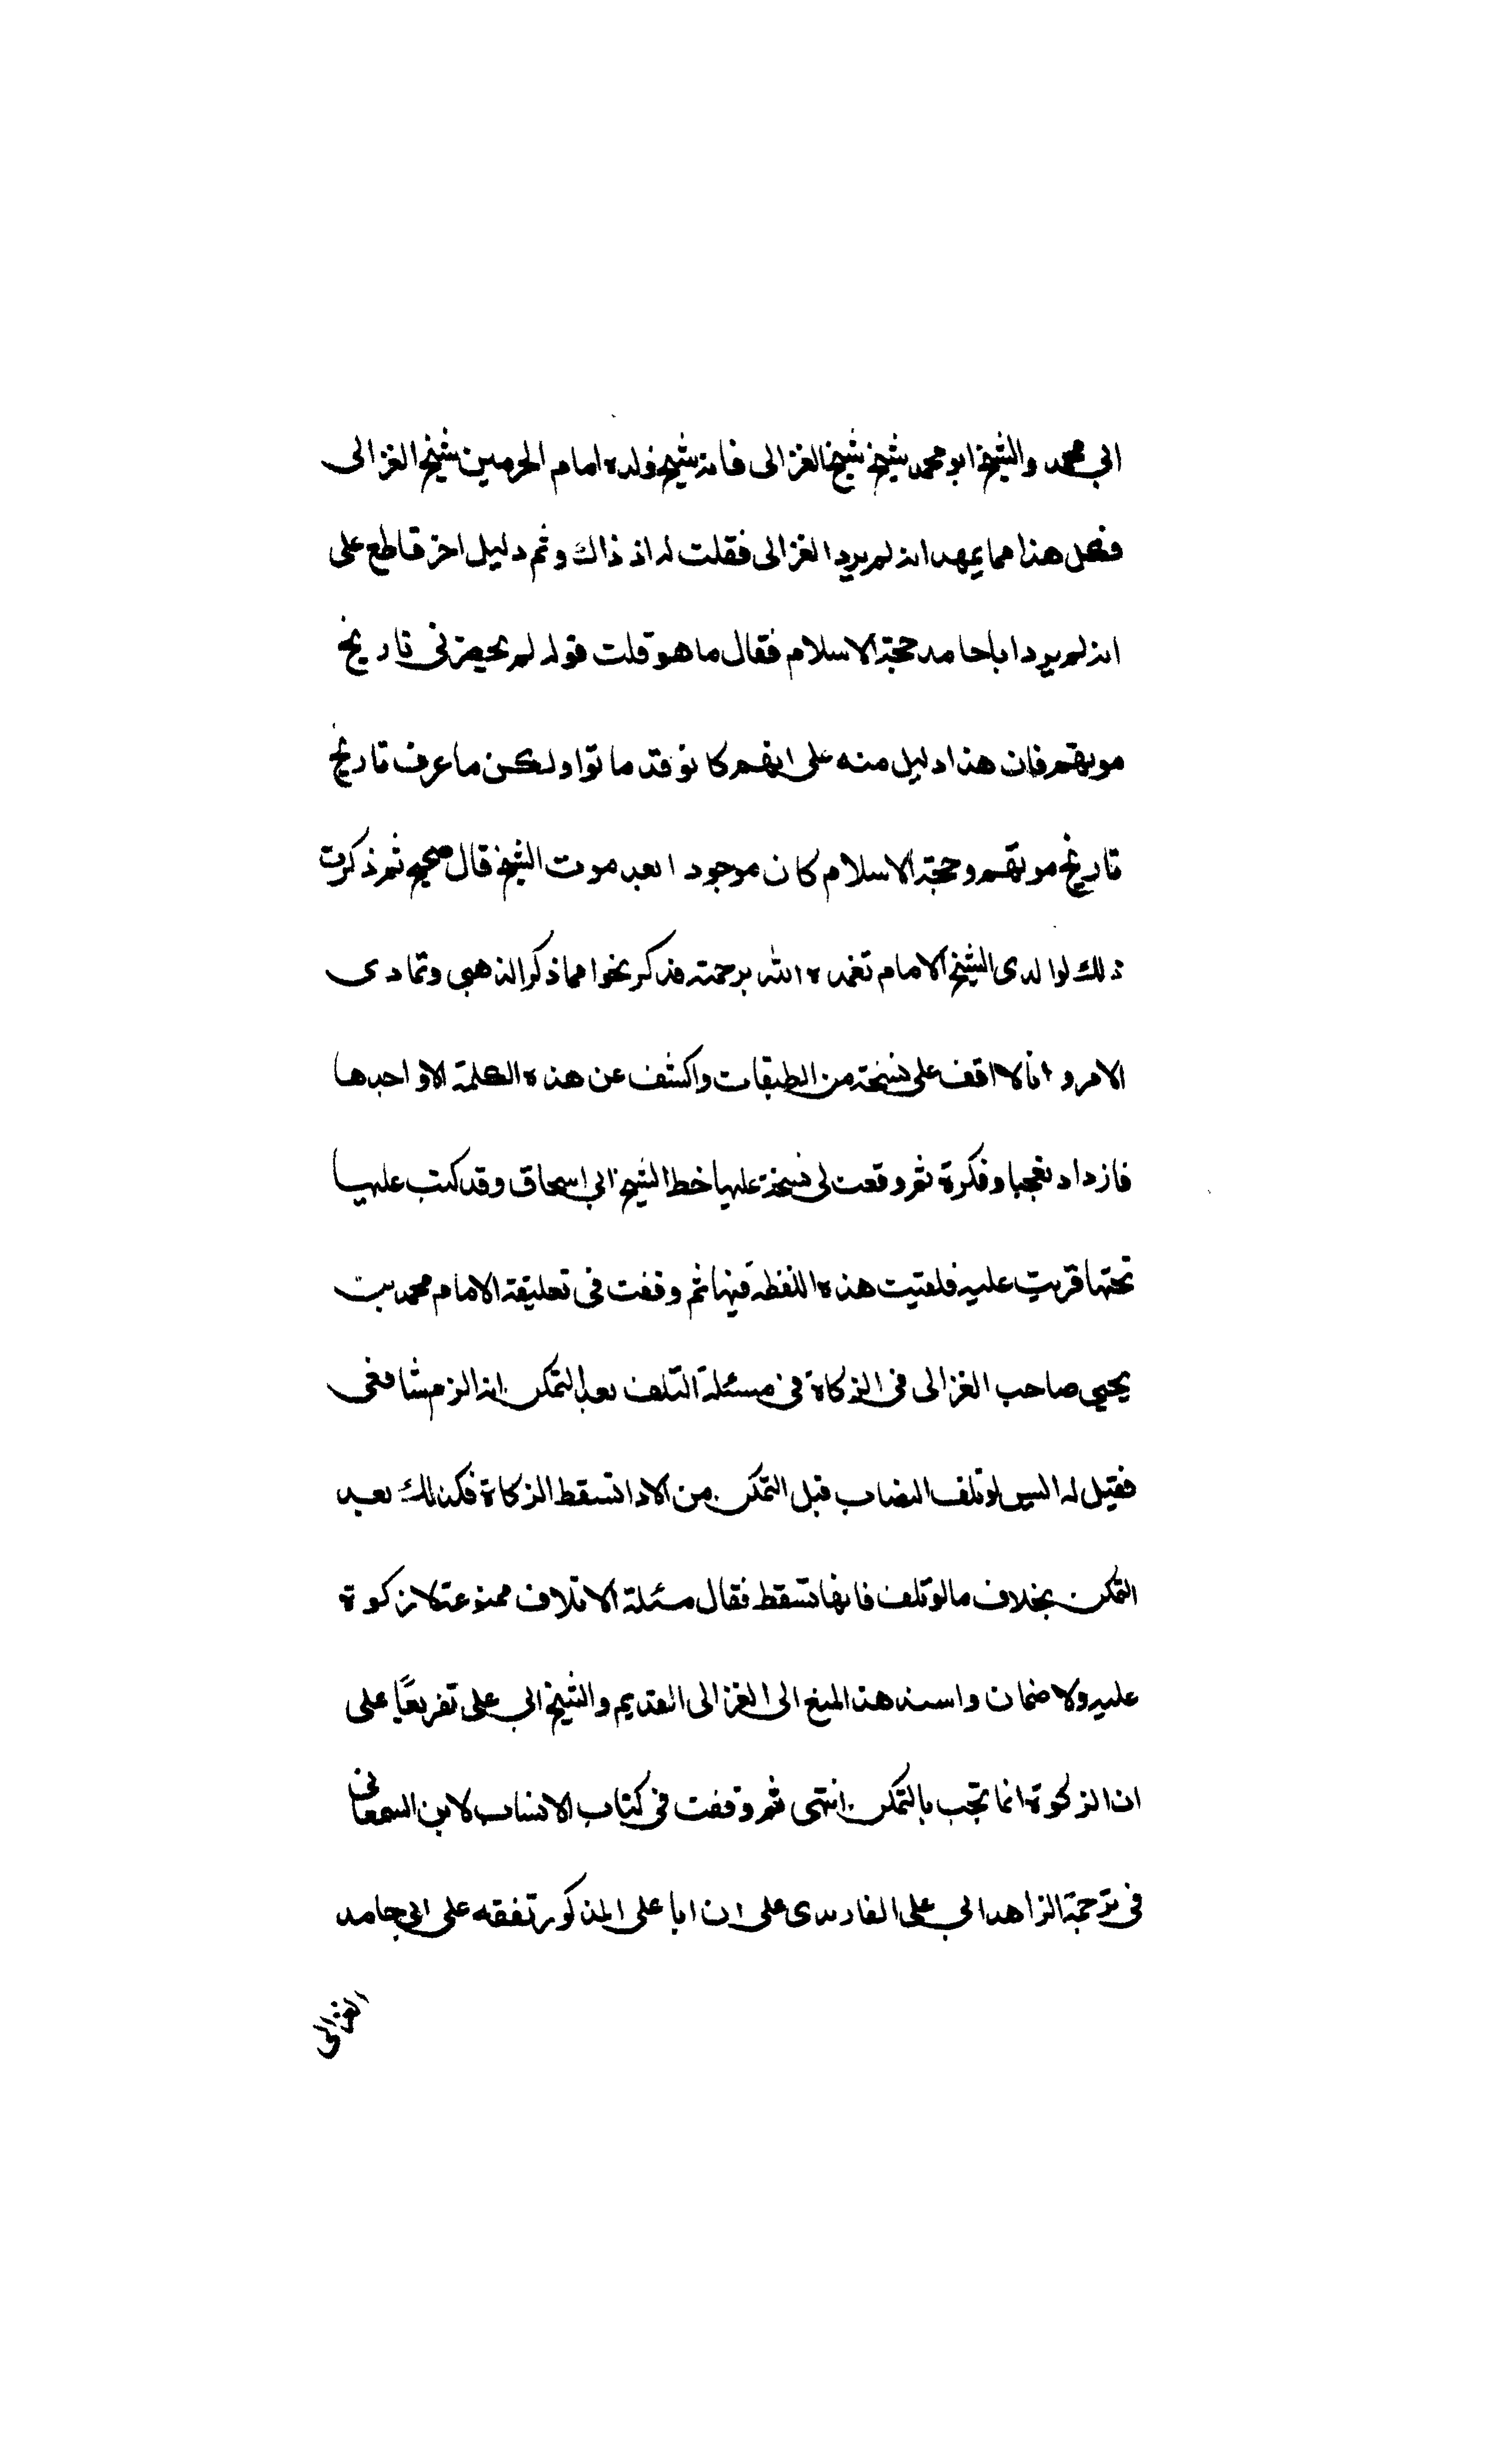 ابي محمد والشيخ ابو محمد شيخ شيخ الغزالى فانه شيخ ولده امام الحرمين شيخ الغزالى
فهل هذا مما يمهد انه لم يرد الغزالى فقلت له اذ ذاك وثم دليل اخر قاطع على
انه لم يرد اباحامد حجة الاسلام فقال ما هو قلت قوله لم يحضرنى تاريخ
موتهم فان هذا دليل منه على انهم كانو قد ماتوا ولكن ما عرف تاريخ
تاريخ موتهم وحجة الاسلام كان موجودا بعد موت الشيخ قال صحيح ثم ذكرت
ذلك لوالدى الشيخ الامام تغمده الله برحمته فذكر نحوا مما ذكر الذهبى وتمادى
الامر وانا لا اقف على نسخة من الطبقات واكشف عن هذه الكلمة الا واجدها
فازداد تعجبا وفكرة ثم وقعت لى نسخة عليها خط الشيخ ابى اسحاق وقد كتب عليها
تحتها قريت عليه فلقيت هذه اللفظة فيها ثم وقفت فى تعليقة الامام محمد بن
يحيى صاحب الغزالى فى الزكاة فى مسئلة التلف بعد التمكن انه الزم شافعى
فقيل له اليس لو تلف النصاب قبل التمكن من الادا تسقط الزكاة فكذلك بعد
التمكن بخلاف ما لو تلف فانها تسقط فقال مسئلة الاتلاف ممنوعة لا زكوة
عليه ولا ضمان واسند هذا المنع الى الغزالى القديم والشيخ ابى على تفريعًا على
ان الزكوة انما تجب بالتمكن انتهى ثم وقفت فى كتاب الانساب لابن السمعانى
فى ترجمة الزاهد ابى على الفارمدى على ان ابا على المذكور تفقه على ابى حامد
الغزالى